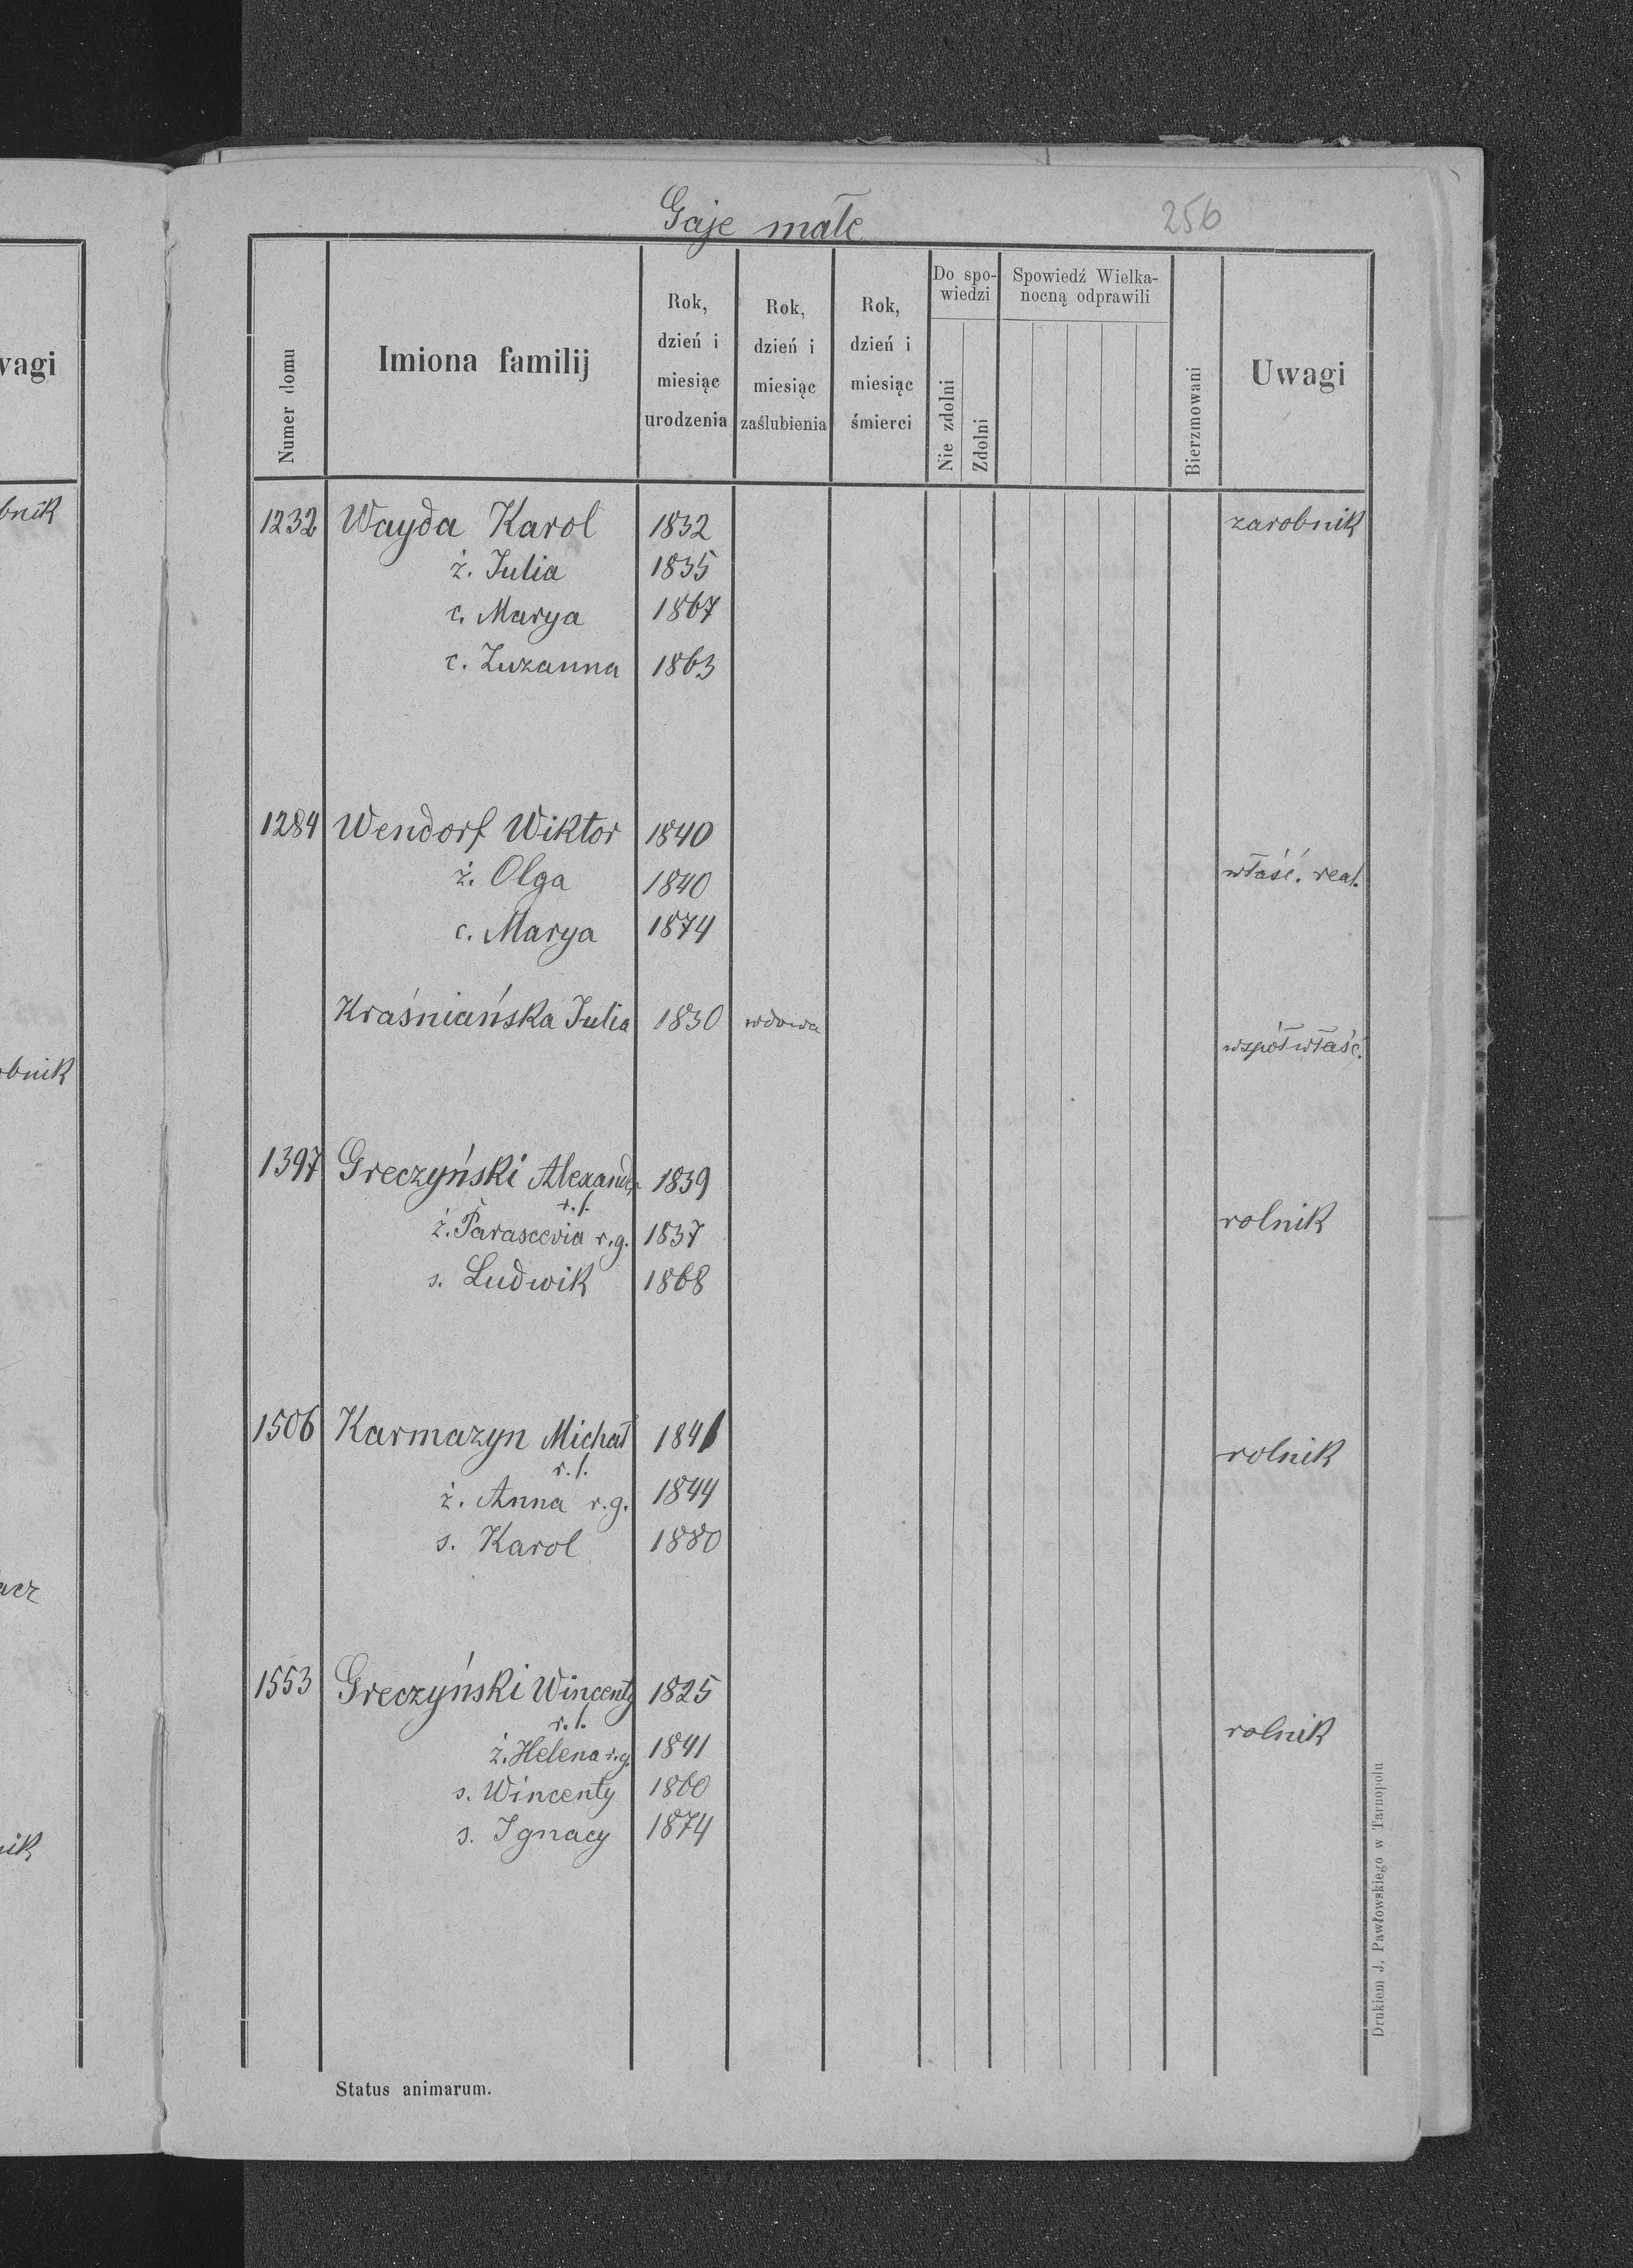 Gaje małe
256
Numer domu
Imiona familij
Rok, dzień i miesiąc urodzenia
Rok, dzień i miesiąc zaślubienia
Rok, dzień i miesiąc śmierci
Do spo-
wiedzi
Nie zdolni
Zdolni
Spowiedź Wielka-
nocną odprawili
Bierzmowani
Uwagi
1232 Wayda Karol 1832 zarobnik
ż. Julia 1835
c. Marya 1867
c. Zuzanna 1863
1284 Wendorf Wiktor 1840
ż. Olga 1840 właść. real.
c. Marya 1874
Kraśniańska Julia 1830 wdowa
współwłaść.
1397 Greczyński Alexander 1839
r. l.
ż. Parascevia r. g. 1837 rolnik
s. Ludwik 1868
1506 Karmazyn Michał 1841
r. l. rolnik
ż. Anna r. g. 1844
s. Karol 1880
1553 Greczyński Wincenty 1825
r. l. rolnik
ż. Helena r. g. 1841
s. Wincenty 1860
s. Ignacy 1874
Status animarum.
Drukiem J. Pawłowskiego w Tarnopolu
wagi
bnik
obnik
acz
nik